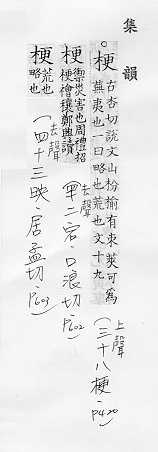 集韻
。梗 古杏切說文山枌榆有朿莢可為
蕪夷也一曰略也荒也文十九
(上聲
三十八梗．P420)
梗 禦災害也周禮招
梗禬禳鄭興讀
(去聲
四十二宕．口浪切．P602)
梗 荒也
略也
(去聲
四十三映．居孟切．P603)